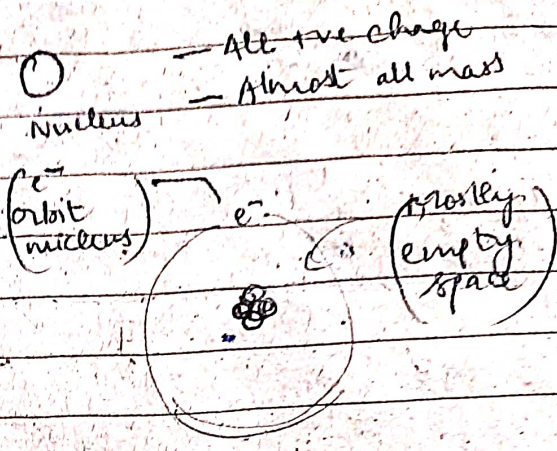 — All +ve charge
— Almost all mass
Nucleus
(e⁻
orbit
nucleus)
e⁻
(Mostly
empty
space)